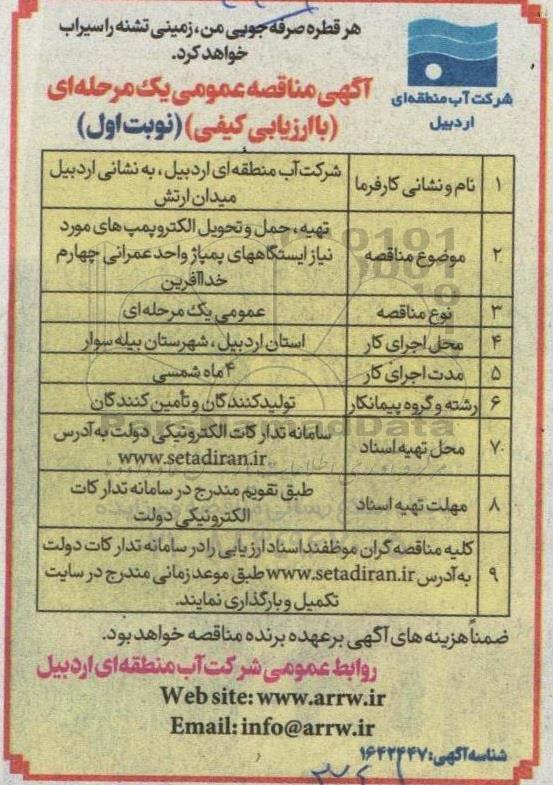 هر قطره صرفه جویی من، زمینی تشنه را سیراب
خواهد کرد.
شرکت آب منطقه‌ای
اردبیل
آگهی مناقصه عمومی یک مرحله‌ای
(با ارزیابی کیفی) (نوبت اول)
۱ نام و نشانی کارفرما شرکت آب منطقه‌ای اردبیل، به نشانی اردبیل
میدان ارتش
۲ موضوع مناقصه تهیه، حمل و تحویل الکتروپمپ های مورد
نیاز ایستگاههای پمپاژ واحد عمرانی چهارم
خداآفرین
۳ نوع مناقصه عمومی یک مرحله‌ای
۴ محل اجرای کار استان اردبیل، شهرستان بیله سوار
۵ مدت اجرای کار ۴ ماه شمسی
۶ رشته و گروه پیمانکار تولیدکنندگان و تأمین کنندگان
۷ محل تهیه اسناد سامانه تدارکات الکترونیکی دولت به آدرس
www.setadiran.ir
۸ مهلت تهیه اسناد طبق تقویم مندرج در سامانه تدارکات
الکترونیکی دولت
۹ کلیه مناقصه گران موظفند اسناد ارزیابی را در سامانه تدارکات دولت
به آدرس www.setadiran.ir طبق موعد زمانی مندرج در سایت
تکمیل و بارگذاری نمایند.
ضمناً هزینه های آگهی بر عهده برنده مناقصه خواهد بود.
روابط عمومی شرکت آب منطقه‌ای اردبیل
Web site: www.arrw.ir
Email: info@arrw.ir
شناسه آگهی: ۱۶۴۲۴۴۷